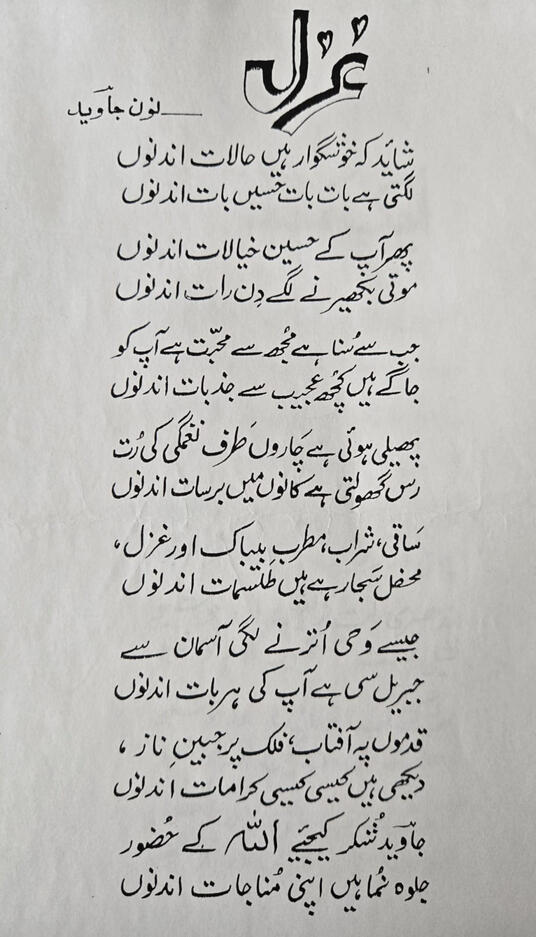 غزل
ـــ نون جاوید
شاید کہ خوشگوار ہیں حالات اندنوں
لگتی ہے بات بات حسیں بات اندنوں
پھر آپ کے حسین خیالات اندنوں
موتی بکھیرنے لگے دِن رات اندنوں
جب سے سُنا ہے مجھ سے محبّت ہے آپ کو
جاگے ہیں کچھ عجیب سے جذبات اندنوں
پھیلی ہوئی ہے چاروں طَرف نغمگی کی رُت
رس گھولتی ہے کانوں میں برسات اندنوں
سَاقی، شراب، مطربِ بیباک اور غزل،
محفل سَجا رہے ہیں طلسمات اندنوں
جیسے وَحی اُترنے لگی آسمان سے
جبریل سی ہے آپ کی ہر بات اندنوں
قدموں پہ آفتاب، فلک پر جبینِ ناز،
دیکھی ہیں کیسی کیسی کرامات اندنوں
جاوید شُکر کیجئیے اللہ کے حُضور
جلوہ نُما ہیں اپنی مُناجات اندنوں